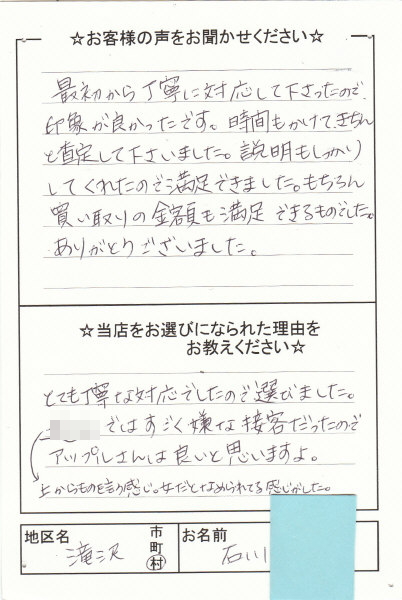 ☆お客様の声をお聞かせください☆
最初から丁寧に対応して下さったので、
印象が良かったです。時間もかけて、きちん
と査定して下さいました。説明もしっかり
してくれたので満足できました。もちろん
買い取りの金額も満足できるものでした。
ありがとうございました。
☆当店をお選びになられた理由を
お教えください☆
とても丁寧な対応でしたので選びました。
ではすごく嫌な接客だったので
アップルさんは良いと思いますよ。
上からものを言う感じ。女だとなめられてる感じがした。
地区名 滝沢 市町村 お名前 石川